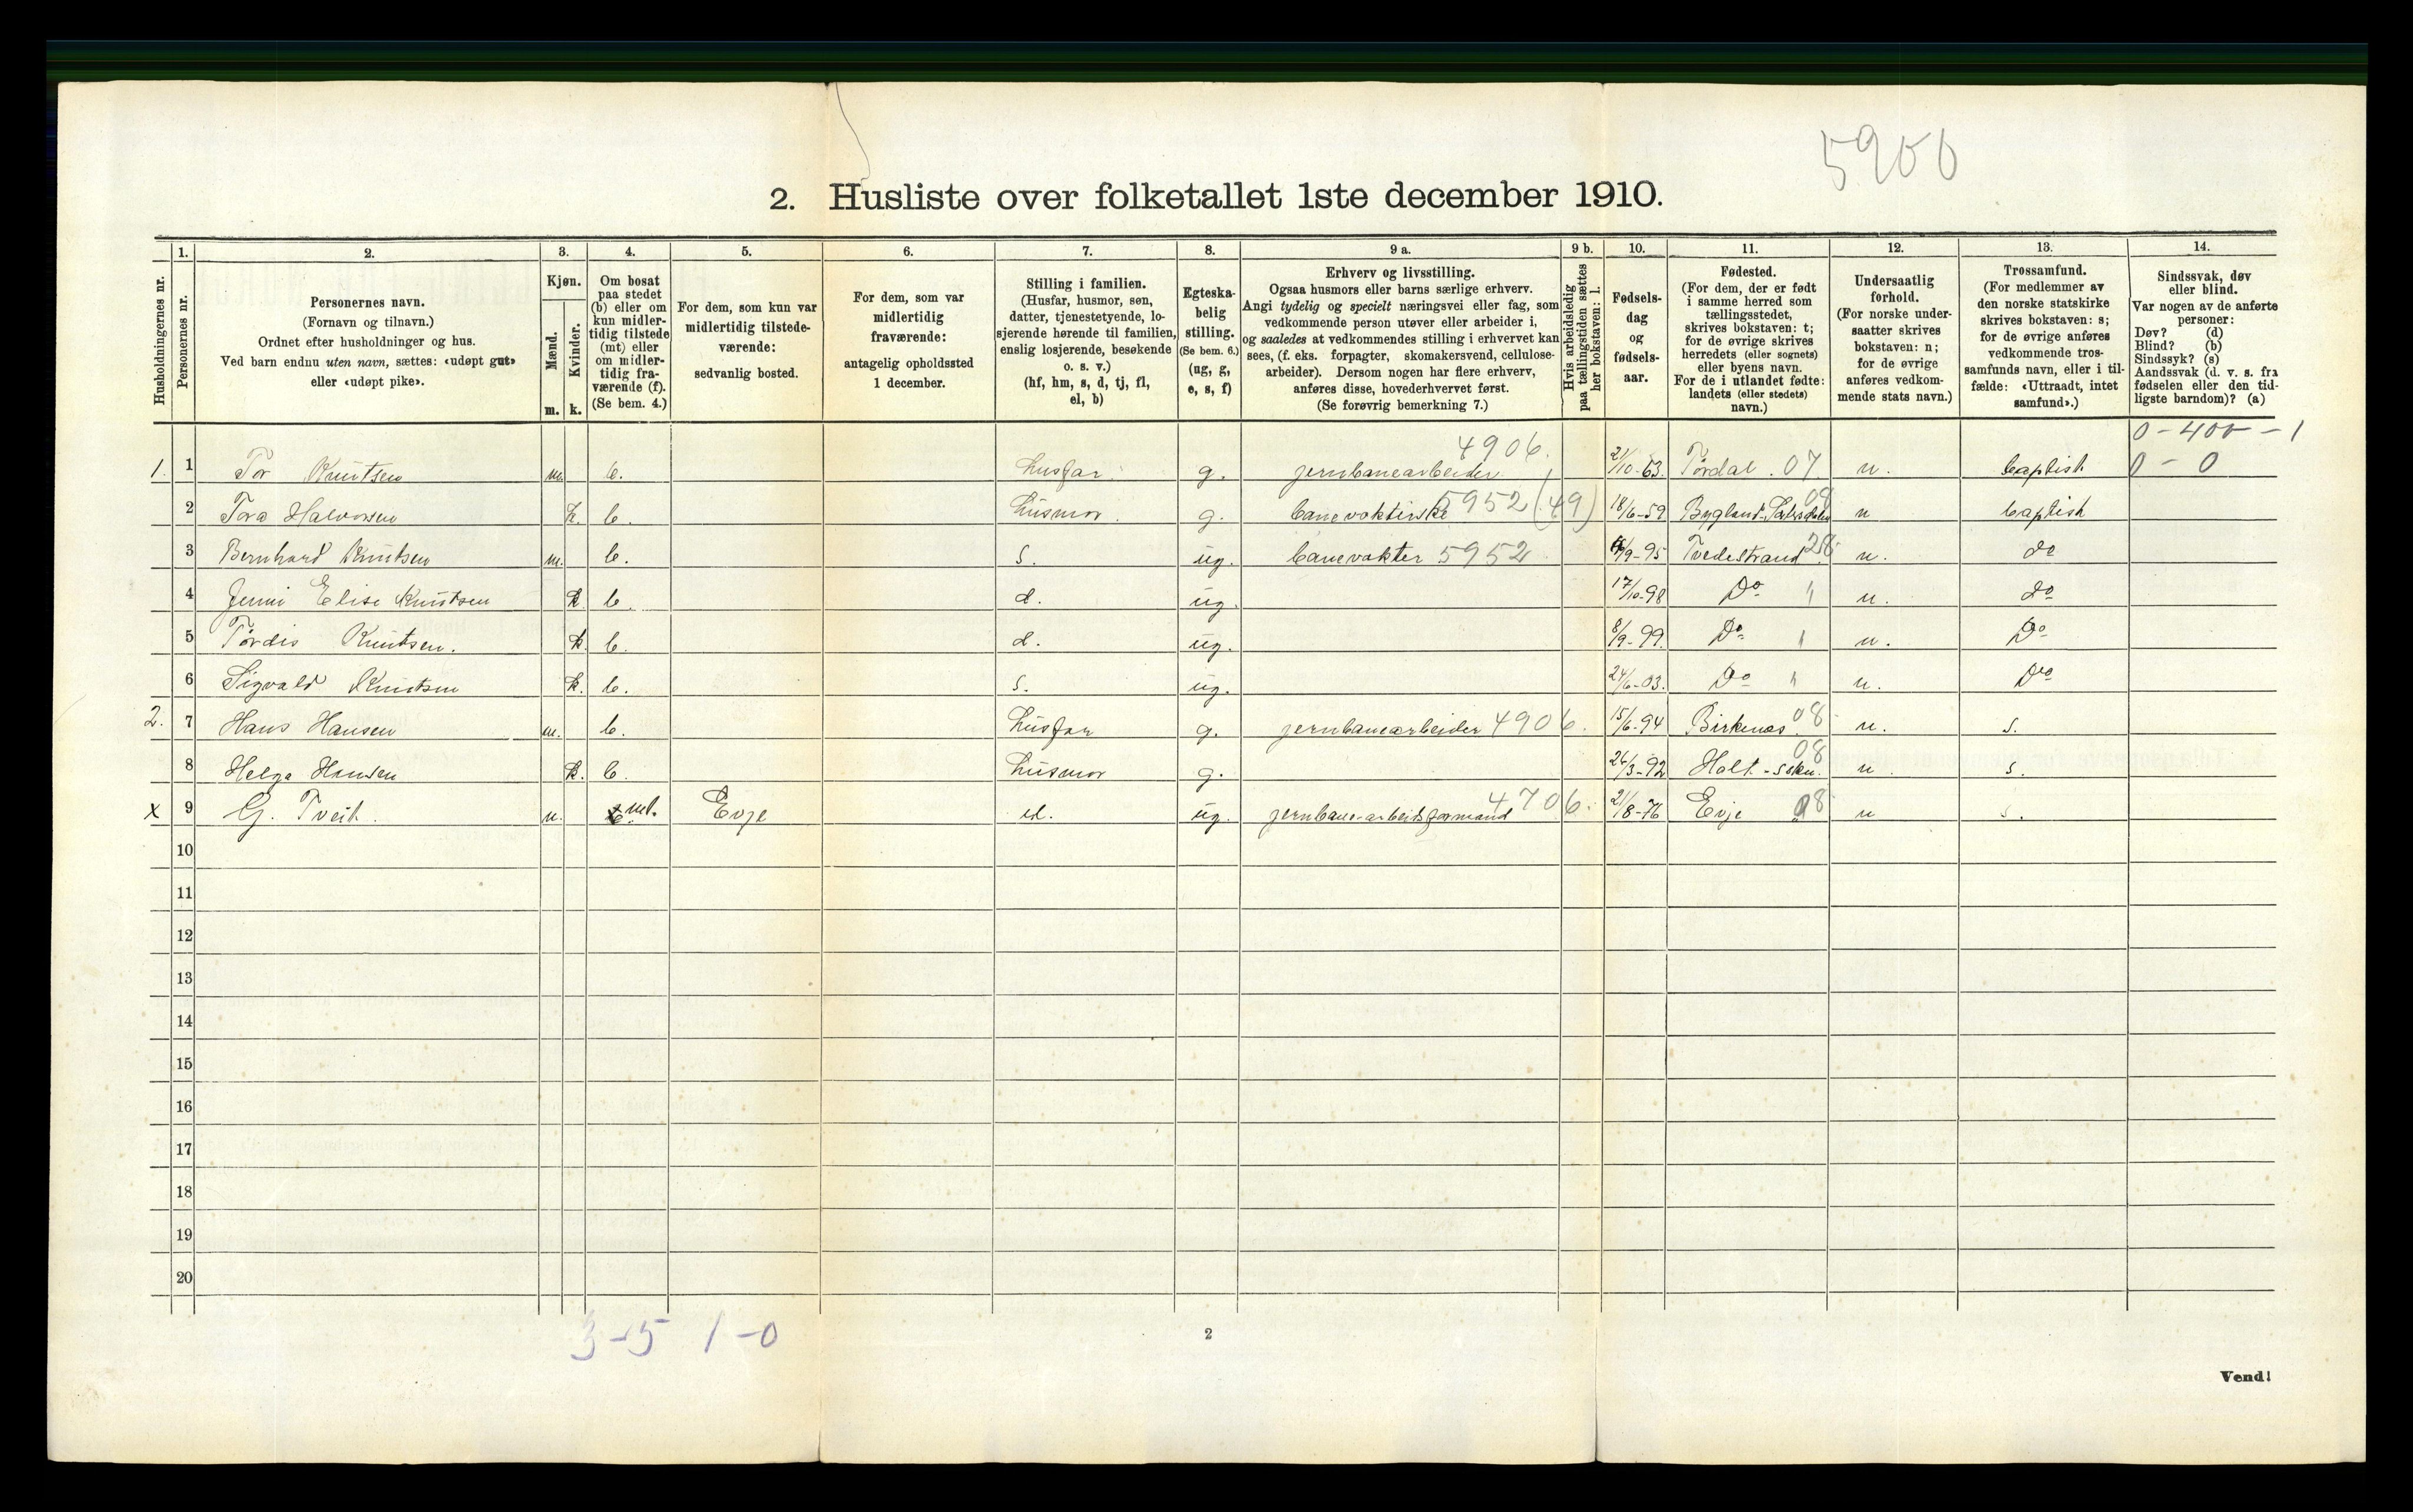 5900
2. Husliste over folketallet 1ste december 1910.
Husholdningernes nr.
1.
Personernes nr.
2.
Personernes navn.
(Fornavn og tilnavn.)
Ordnet efter husholdninger og hus.
Ved barn endnu uten navn, sættes: «udøpt gut»
eller «udøpt pike».
3.
Kjøn.
Mænd.
Kvinder.
m. k.
4.
Om bosat
paa stedet
(b) eller om
kun midler-
tidig tilstede
(mt) eller
om midler-
tidig fra-
værende (f).
(Se bem. 4.)
5.
For dem, som kun var
midlertidig tilstede-
værende:
sedvanlig bosted.
6.
For dem, som var
midlertidig
fraværende:
antagelig opholdssted
1 december.
7.
Stilling i familien.
(Husfar, husmor, søn,
datter, tjenestetyende, lo-
sjerende hørende til familien,
enslig losjerende, besøkende
o. s. v.)
(hf, hm, s, d, tj, fl,
el, b)
8.
Egteska-
belig
stilling.
(Se bem. 6.)
(ug, g,
e, s, f)
9 a.
Erhverv og livsstilling.
Ogsaa husmors eller barns særlige erhverv.
Angi tydelig og specielt næringsvei eller fag, som
vedkommende person utøver eller arbeider i,
og saaledes at vedkommendes stilling i erhvervet kan
sees, (f. eks. forpagter, skomakersvend, cellulose-
arbeider). Dersom nogen har flere erhverv,
anføres disse, hovederhvervet først.
(Se forøvrig bemerkning 7.)
9 b.
Hvis arbeidsledig
paa tællingstiden sættes
her bokstaven: l.
10.
Fødsels-
dag
og
fødsels-
aar.
11.
Fødested.
(For dem, der er født
i samme herred som
tællingsstedet,
skrives bokstaven: t;
for de øvrige skrives
herredets (eller sognets)
eller byens navn.
For de i utlandet fødte:
landets (eller stedets)
navn.)
12.
Undersaatlig
forhold.
(For norske under-
saatter skrives
bokstaven: n;
for de øvrige
anføres vedkom-
mende stats navn.)
13.
Trossamfund.
(For medlemmer av
den norske statskirke
skrives bokstaven: s;
for de øvrige anføres
vedkommende tros-
samfunds navn, eller i til-
fælde: «Uttraadt, intet
samfund».)
14.
Sindssvak, døv
eller blind.
Var nogen av de anførte
personer:
Døv? (d)
Blind? (b)
Sindssyk? (s)
Aandssvak (d. v. s. fra
fødselen eller den tid-
ligste barndom)? (a)
4906. 0-400-1
1. 1 Tor Knutsen m. b. husfar g. jernbanearbeider 21/10-63. Tørdal. 07 n. baptist 0-0
2 Tora Halvorsen k. b. husmor. g. banevokterske 5952 (49) 18/6-59 Bygland-Sætersdalen 08 n baptist
3 Bernhard Knutsen m. b. s. ug. banevokter 5952 /9-95 Tvedestrand 28 n. do
4 Jenni Elise Knutsen k b d. ug. 17/10-98 Do " n. do
5 Tordis Knutsen. k. b. d. ug. 8/9-99. Do " n. Do
6 Sigvald Knutsen k. b. s. ug. 24/6-03. Do " n. Do
2. 7 Hans Hansen m. b. husfar g. jernbanearbeider 4906. 15/6-94 Birkenæs 08 n. s.
8 Helga Hansen k. b. husmor g. 26/3-92 Holt-sokn. 08 n. s.
x 9 G. Tveit. m. mt. Evje el. ug. jernbane-arbeidsformand 4706. 21/8-76 Evje 08 n s.
10
11
12
13
14
15
16
17
18
19
20
3-5 1-0
2
Vend!